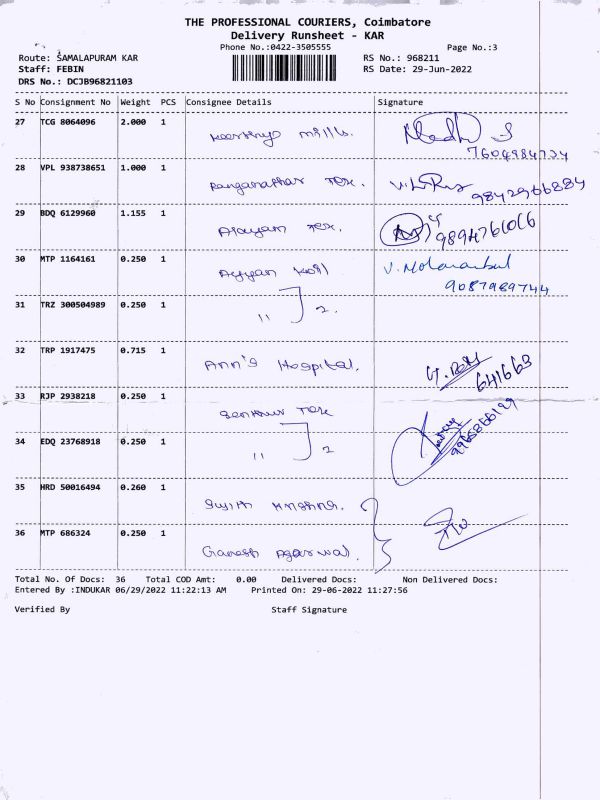 THE PROFESSIONAL COURIERS, Coimbatore
Delivery Runsheet - KAR
Phone No.:0422-3505555 Page No.:3
Route: SAMALAPURAM KAR RS No.: 968211
Staff: FEBIN RS Date: 29-Jun-2022
DRS No.: DCJB96821103
S No Consignment No Weight PCS Consignee Details Signature
27 TCG 8064096 2.000 1 mills.
7604984734
28 VPL 938738651 1.000 1 Ranganathar Tex.
9842966884
29 BDQ 6129960 1.155 1 Tex.
9894766066
30 MTP 1164161 0.250 1 Ayyan
9087989744
31 TRZ 300504989 0.250 1 " ] 2.
32 TRP 1917475 0.715 1 Ann's Hospital.
641663
33 RJP 2938218 0.250 1 Tex
34 EDQ 23768918 0.250 1 " ] 2
35 HRD 50016494 0.260 1 Sujith Krishna.
36 MTP 686324 0.250 1 Ganesh Agarwal.
Total No. Of Docs: 36 Total COD Amt: 0.00 Delivered Docs: Non Delivered Docs:
Entered By :INDUKAR 06/29/2022 11:22:13 AM Printed On: 29-06-2022 11:27:56
Verified By Staff Signature